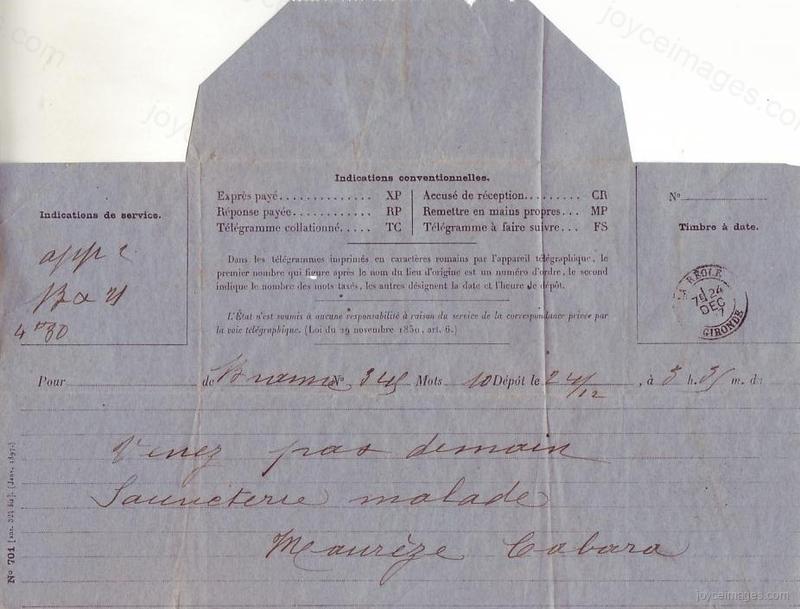 joyceimages.com
Indications conventionnelles.
Exprès payé.............. XP
Réponse payée........... RP
Télégramme collationné..... TC
Accusé de réception......... CR
Remettre en mains propres... MP
Télégramme à faire suivre... FS
Dans les télégrammes imprimés en caractères romains par l'appareil télégraphique, le
premier nombre qui figure après le nom du lieu d'origine est un numéro d'ordre, le second
indique le nombre des mots taxés, les autres désignent la date et l'heure de dépôt.
L'État n'est soumis à aucune responsabilité à raison du service de la correspondance privée par
la voie télégraphique. (Loi du 29 novembre 1850, art. 6.)
Indications de service.
4 30
N°
Timbre à date.
LA RÉOLE
24
DEC
GIRONDE
Pour de Branne N° 345 Mots 10 Dépôt le 24/12, à 3 h. 35 m. du
Venez pas demain
Sauveterre malade
Maurèze Cabara
N° 701
joyceimages.com